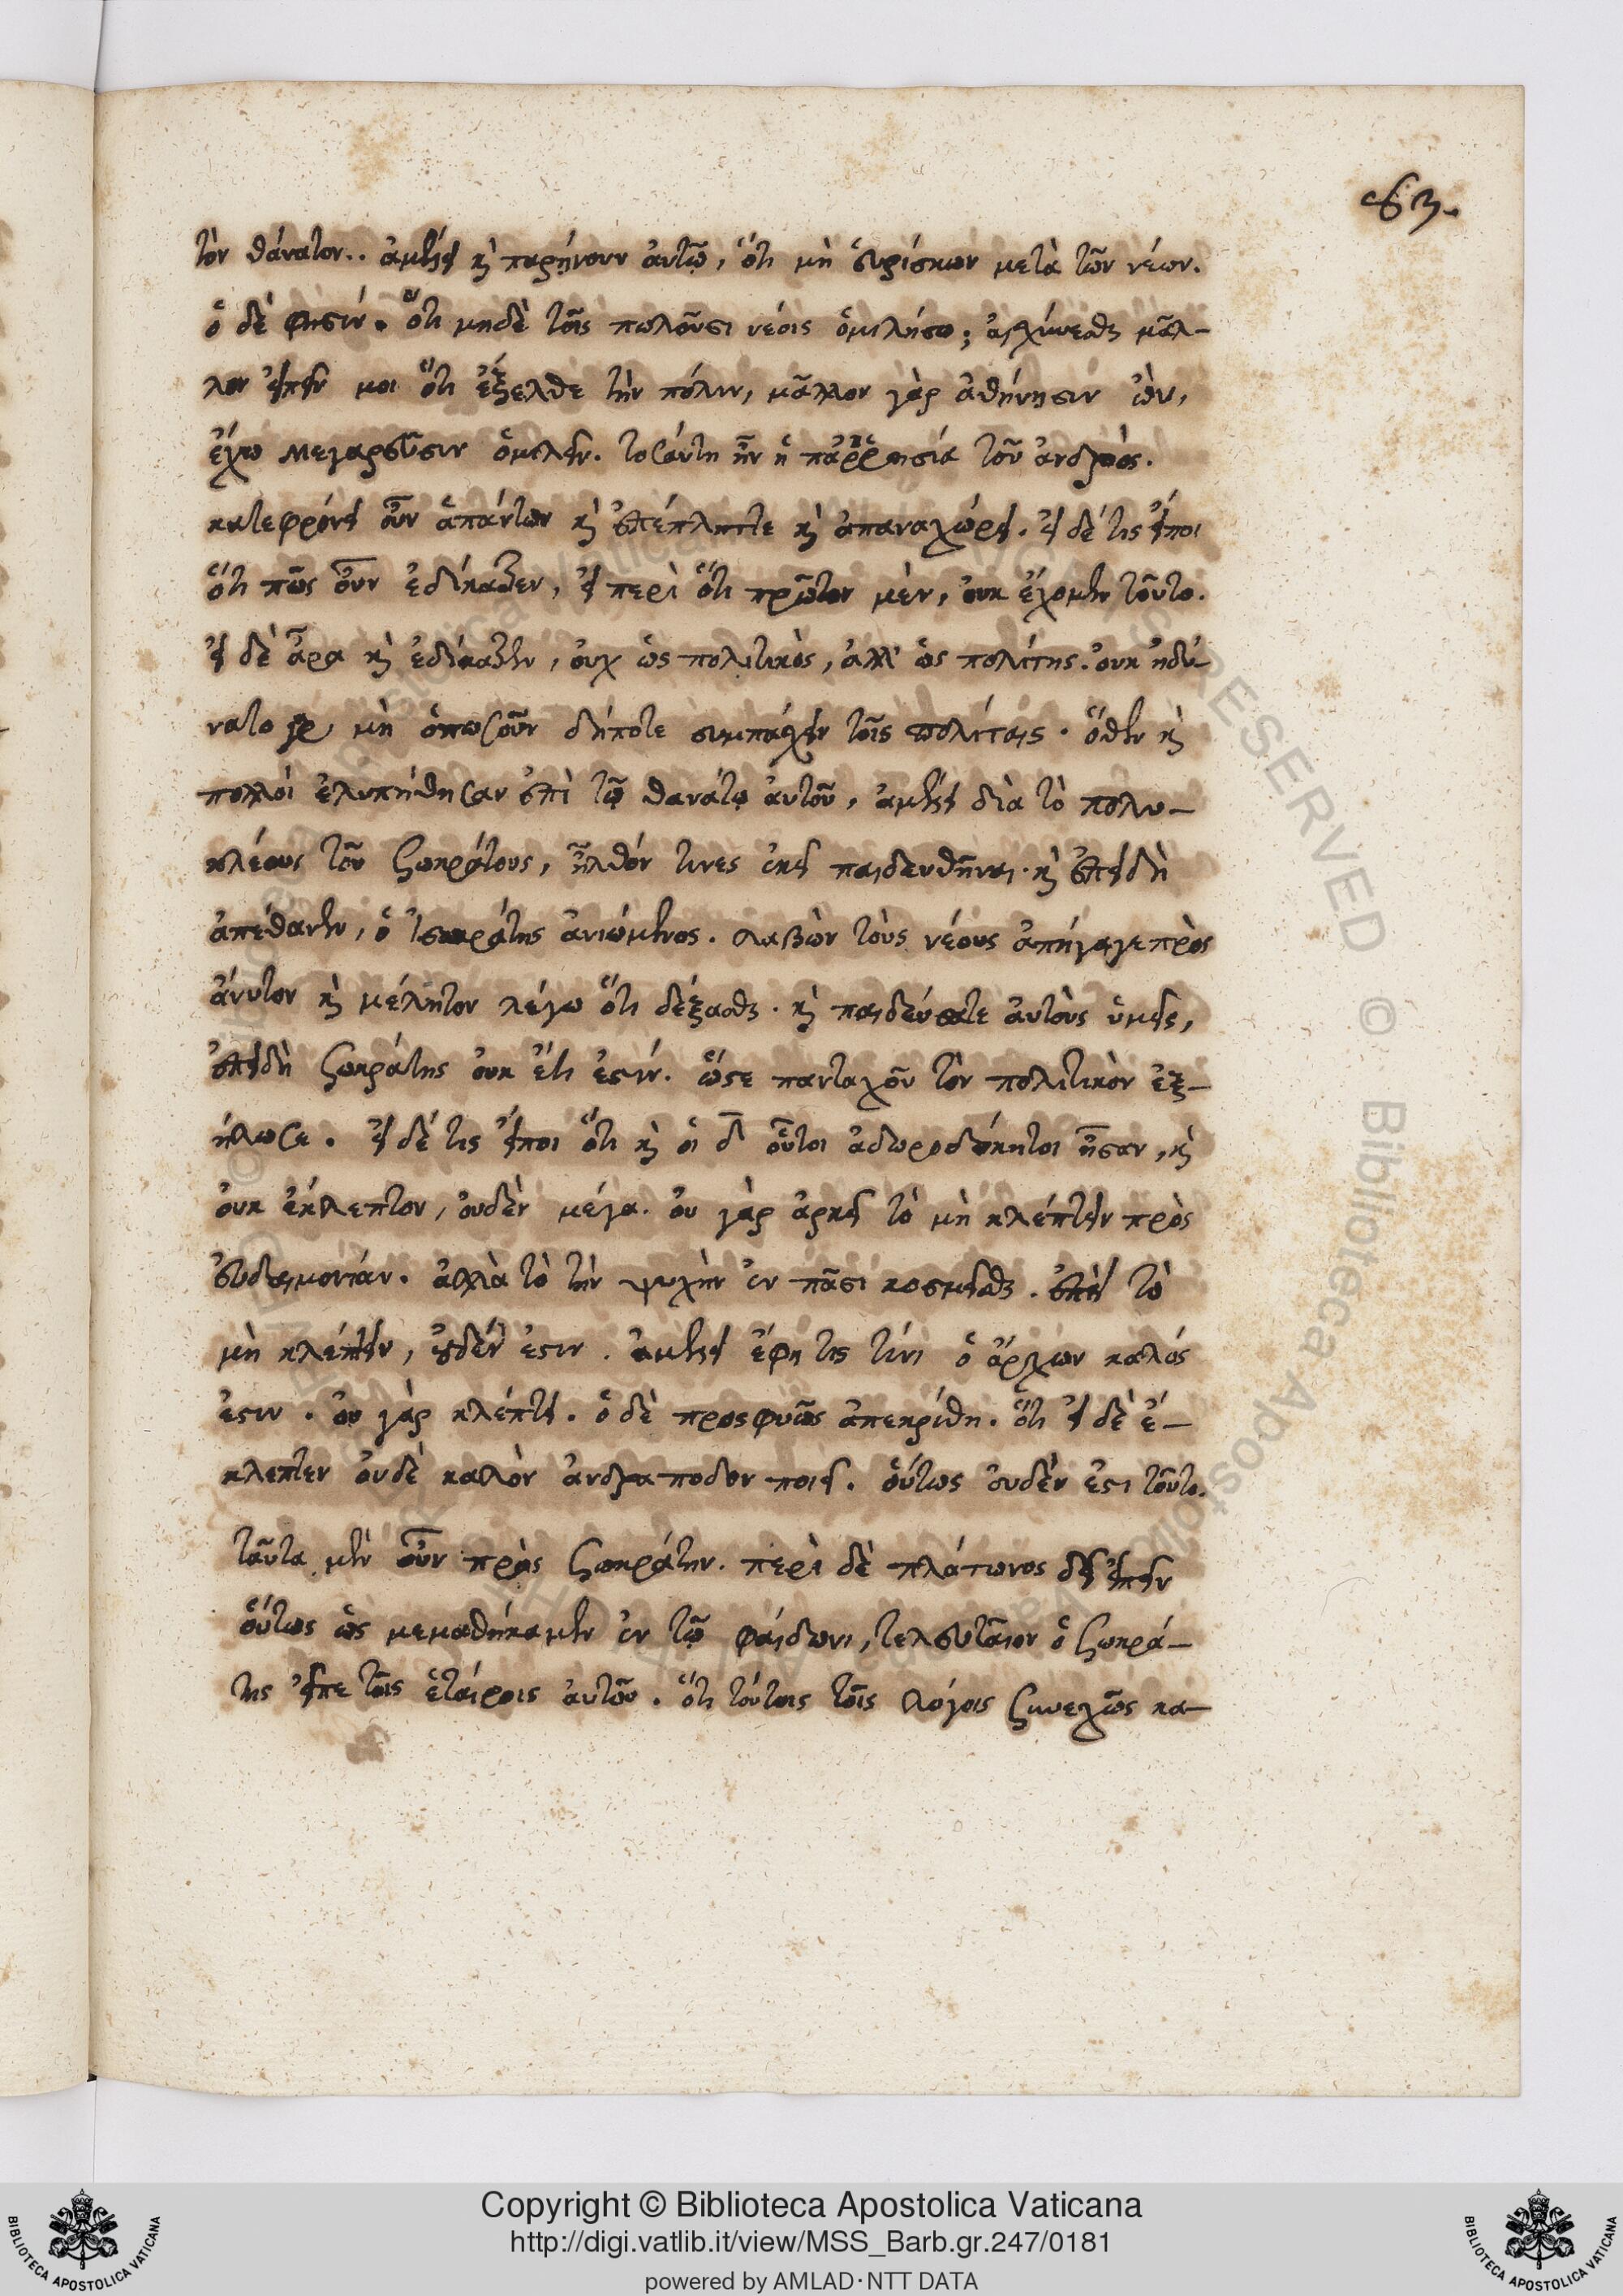 63.
τὸν θάνατον.. ἀμέλει κỳ παρήνουν ἀυτῶ, ὅτι μὴ ἑυρίσκων μετὰ τῶν νέων.
ὁ δὲ φησιν. ὅτι μηδὲ τοῖς πωλοῦσι νέοις ὁμιλήσω; ἀισχύνεσθε μᾶλ-
λον ἐιπεῖν μοι ὅτι ἔξελθε τὴν πόλιν, μᾶλλον γὰρ ἀθήνησιν ὢν,
ἔχω μεγαρεῦσιν ὁμιλεῖν. τοσάυτη ἦν ἡ παῤῥησία τοῦ ἀνδρός.
κατεφρόνει οὖν ἁπάντων κỳ ἐπέπληττε κỳ ἀπαναχώρει. ἐι δέ τις ἔιποι
ὅτι πῶς οὖν ἐδίκαζεν, ἐι περὶ ὅτι πρῶτον μὲν, ὀυκ ἔχομεν τοῦτο.
ἐι δὲ ἆρα κỳ ἐδίκαζεν, ὀυχ ὡς πολιτικὸς, ἀλλ' ὡς πολίτης. ὀυκ ἠδύ-
νατο γὰρ μὴ ὁπωσοῦν δήποτε συμπάσχειν τοῖς πολίταις. ὅθεν κỳ
πολλοὶ ἐλυπήθησαν ἐπὶ τῶ θανάτω ἀυτοῦ, ἀμέλει διὰ τὸ πολυ-
κλέους τοῦ σωκράτους, ἦλθόν τινες ἐκεῖ παιδευθῆναι. κỳ ἐπειδὴ
ἀπέθανεν, ὁ ἰσοκράτης ἀνιώμενος. λαβὼν τοὺς νέους ἀπήγαγε πρὸς
ἄνυτον κỳ μέλητον λέγω ὅτι δέξασθε. κỳ παιδέυσατε ἀυτοὺς ὑμεῖς,
ἐπειδὴ σωκράτης ὀυκ ἔτι ἐστίν. ὥστε πανταχοῦ τὸν πολιτικὸν ἐξ-
ήλωσε. ἐι δέ τις ἔιποι ὅτι κỳ ὁι δ̄ οὗτοι ἀδωροδόκητοι ἦσαν, κỳ
ὀυκ ἔκλεπτον, ὀυδὲν μέγα. ὀυ γὰρ ἀρκεῖ τὸ μὴ κλέπτειν πρὸς
ἐυδαιμονίαν. ἀλλὰ τὸ τὴν ψυχὴν ἐν πᾶσι κοσμεῖσθαι. ἐπεὶ τὸ
μὴ κλέπτειν, ὀυδέν ἐστιν. ἀμέλει ἔφη τις τίνι ὁ ἄρχων καλός
ἐστιν. ὀυ γὰρ κλέπτει. ὁ δὲ προσφυῶς ἀπεκρίθη. ὅτι ἐι δὲ ἔ-
κλεπτεν ὀυδὲ καλὸν ἀνδράποδον ποιεῖ. ὁύτως ὀυδὲν ἐστι τοῦτο.
ταῦτα μὲν οὖν πρὸς σωκράτην. περὶ δὲ πλάτωνος δεῖ ἐιπεῖν
ὁύτως ὡς μεμαθήκαμεν ἐν τῶ φάιδωνι, τελευταῖον ὁ σωκρά-
της ἐιπε τοῖς ἑταίροις ἀυτοῦ. ὅτι τούτοις τοῖς λόγοις συνεχῶς κα-
Copyright © Biblioteca Apostolica Vaticana
http://digi.vatlib.it/view/MSS_Barb.gr.247/0181
powered by AMLAD·NTT DATA